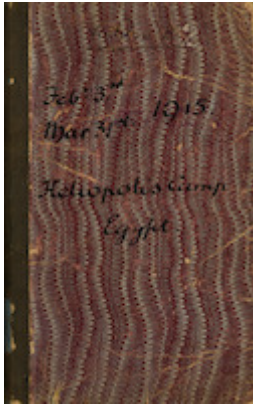 Feb. 3rd
Mar 31st. 1915.
Heliopolis Camp
Egypt.